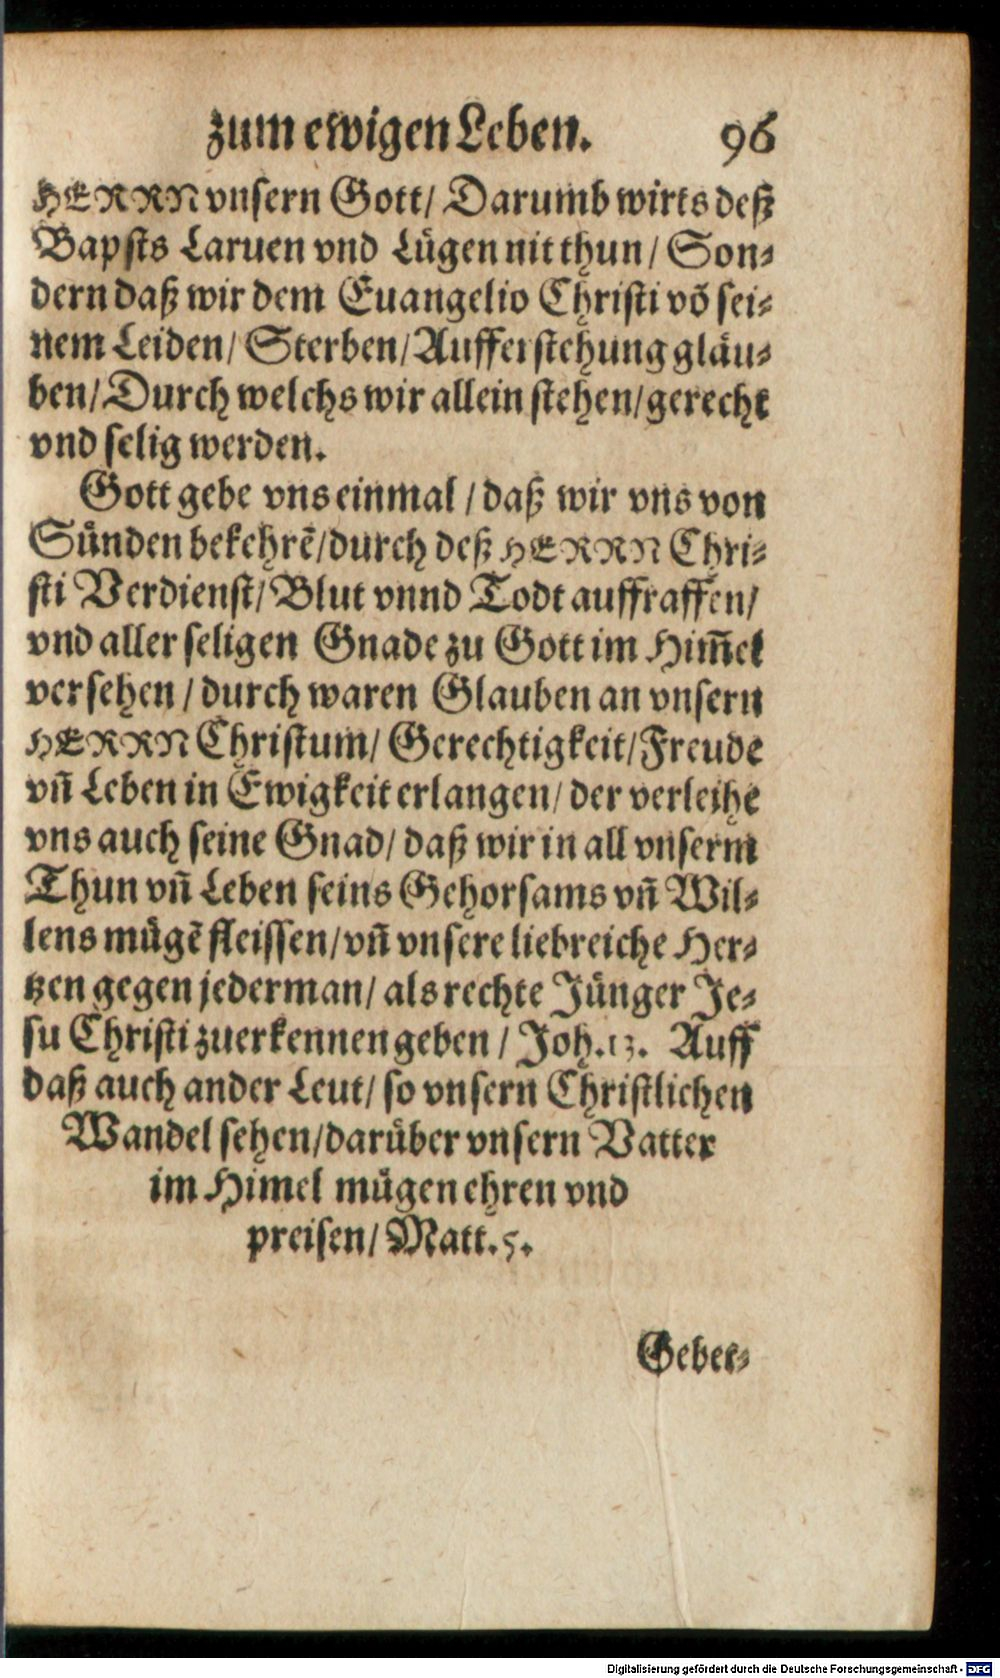 zum ewigen Leben. 96
HERRN vnsern Gott/ Darumb wirts deß
Bapsts Laruen vnd Lügen nit thun/ Son⸗
dern daß wir dem Euangelio Christi võ sei⸗
nem Leiden/ Sterben/ Aufferstehung gläu⸗
ben/ Durch welchs wir allein stehen/ gerecht
vnd selig werden.
Gott gebe vns einmal / daß wir vns von
Sünden bekehrẽ/ durch deß HERRN Chri⸗
sti Verdienst/ Blut vnnd Todt auffraffen/
vnd aller seligen Gnade zu Gott im Him̃el
versehen / durch waren Glauben an vnsern
HERRN Christum/ Gerechtigkeit/ Freude
vñ Leben in Ewigkeit erlangen/ der verleihe
vns auch seine Gnad/ daß wir in all vnserm
Thun vñ Leben seins Gehorsams vñ Wil⸗
lens mügẽ fleissen/ vñ vnsere liebreiche Her⸗
tzen gegen jederman/ als rechte Jünger Je⸗
su Christi zuerkennen geben / Joh. 13. Auff
daß auch ander Leut/ so vnsern Christlichen
Wandel sehen/ darüber vnsern Vatter
im Himel mügen ehren vnd
preisen/ Matt. 5.
Gebet⸗
Digitalisierung gefördert durch die Deutsche Forschungsgemeinschaft - DFG